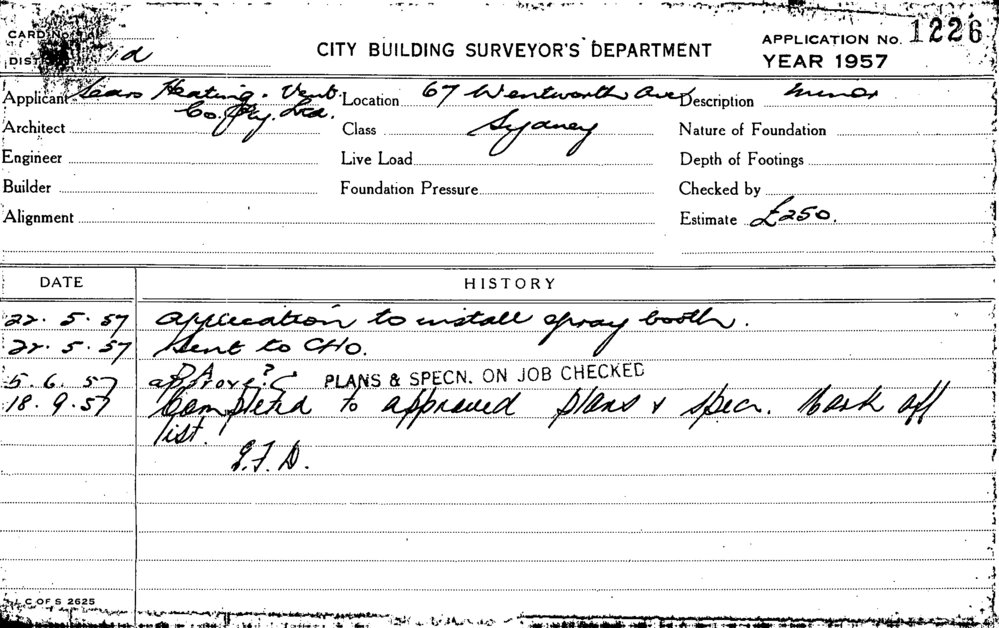 CARD No.
CITY BUILDING SURVEYOR'S DEPARTMENT
APPLICATION No. 1226
DIST
YEAR 1957
Applicant Sears Heating. Vent. Co. Pty. Ltd.
Location 67 Wentworth Ave Sydney
Description Minor
Architect
Class
Nature of Foundation
Engineer
Live Load
Depth of Footings
Builder
Foundation Pressure
Checked by
Alignment
Estimate £250.
DATE HISTORY
22. 5. 57 application to install spray booth.
22. 5. 57 Sent to CHO.
5. 6. 57 approve? C PLANS & SPECN. ON JOB CHECKED
18. 9. 57 Completed to approved plans & specn. Mark off
list.
C OF S 2625